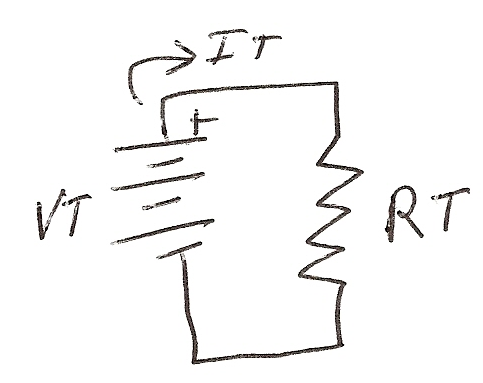 IT
+
VT
RT